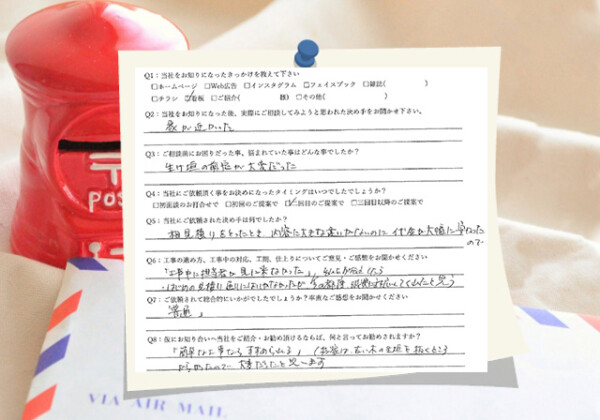 Q1：当社をお知りになったきっかけを教えて下さい
□ホームページ □Web広告 □インスタグラム □フェイスブック □雑誌( )
□チラシ ☑看板 □ご紹介( 様) □その他( )
Q2：当社をお知りになった後、実際にご相談してみようと思われた決め手をお聞かせ下さい。
家が近かった
Q3：ご相談前にお困りだった事、悩まれていた事はどんな事でしたか？
生け垣の剪定が大変だった
Q4：当社にご依頼頂く事をお決めになったタイミングはいつでしたでしょうか？
□初面談のお打合せで □初回のご提案で ☑二回目のご提案で □三回目以降のご提案で
Q5：当社にご依頼された決め手は何でしたか？
相見積りをとったとき、内容に大きな違いがないのに代金が大幅に
ので
Q6：工事の進め方、工事中の対応、工期、仕上りについてご意見・ご感想をお聞かせください
「工事中に担当者が見に来なかった」
はじめの見積り通りにはいかなかったが その都度
Q7：ご依頼されて総合的にいかがでしたでしょうか？率直なご感想をお聞かせください
「普通」
Q8：仮にお知り合いへ当社をご紹介・お勧め頂けるならば、何と言ってお勧めされますか？
「簡単な工事なら すすめられる」
だったので 大変だったと思います
POS
VIA AIR MAIL